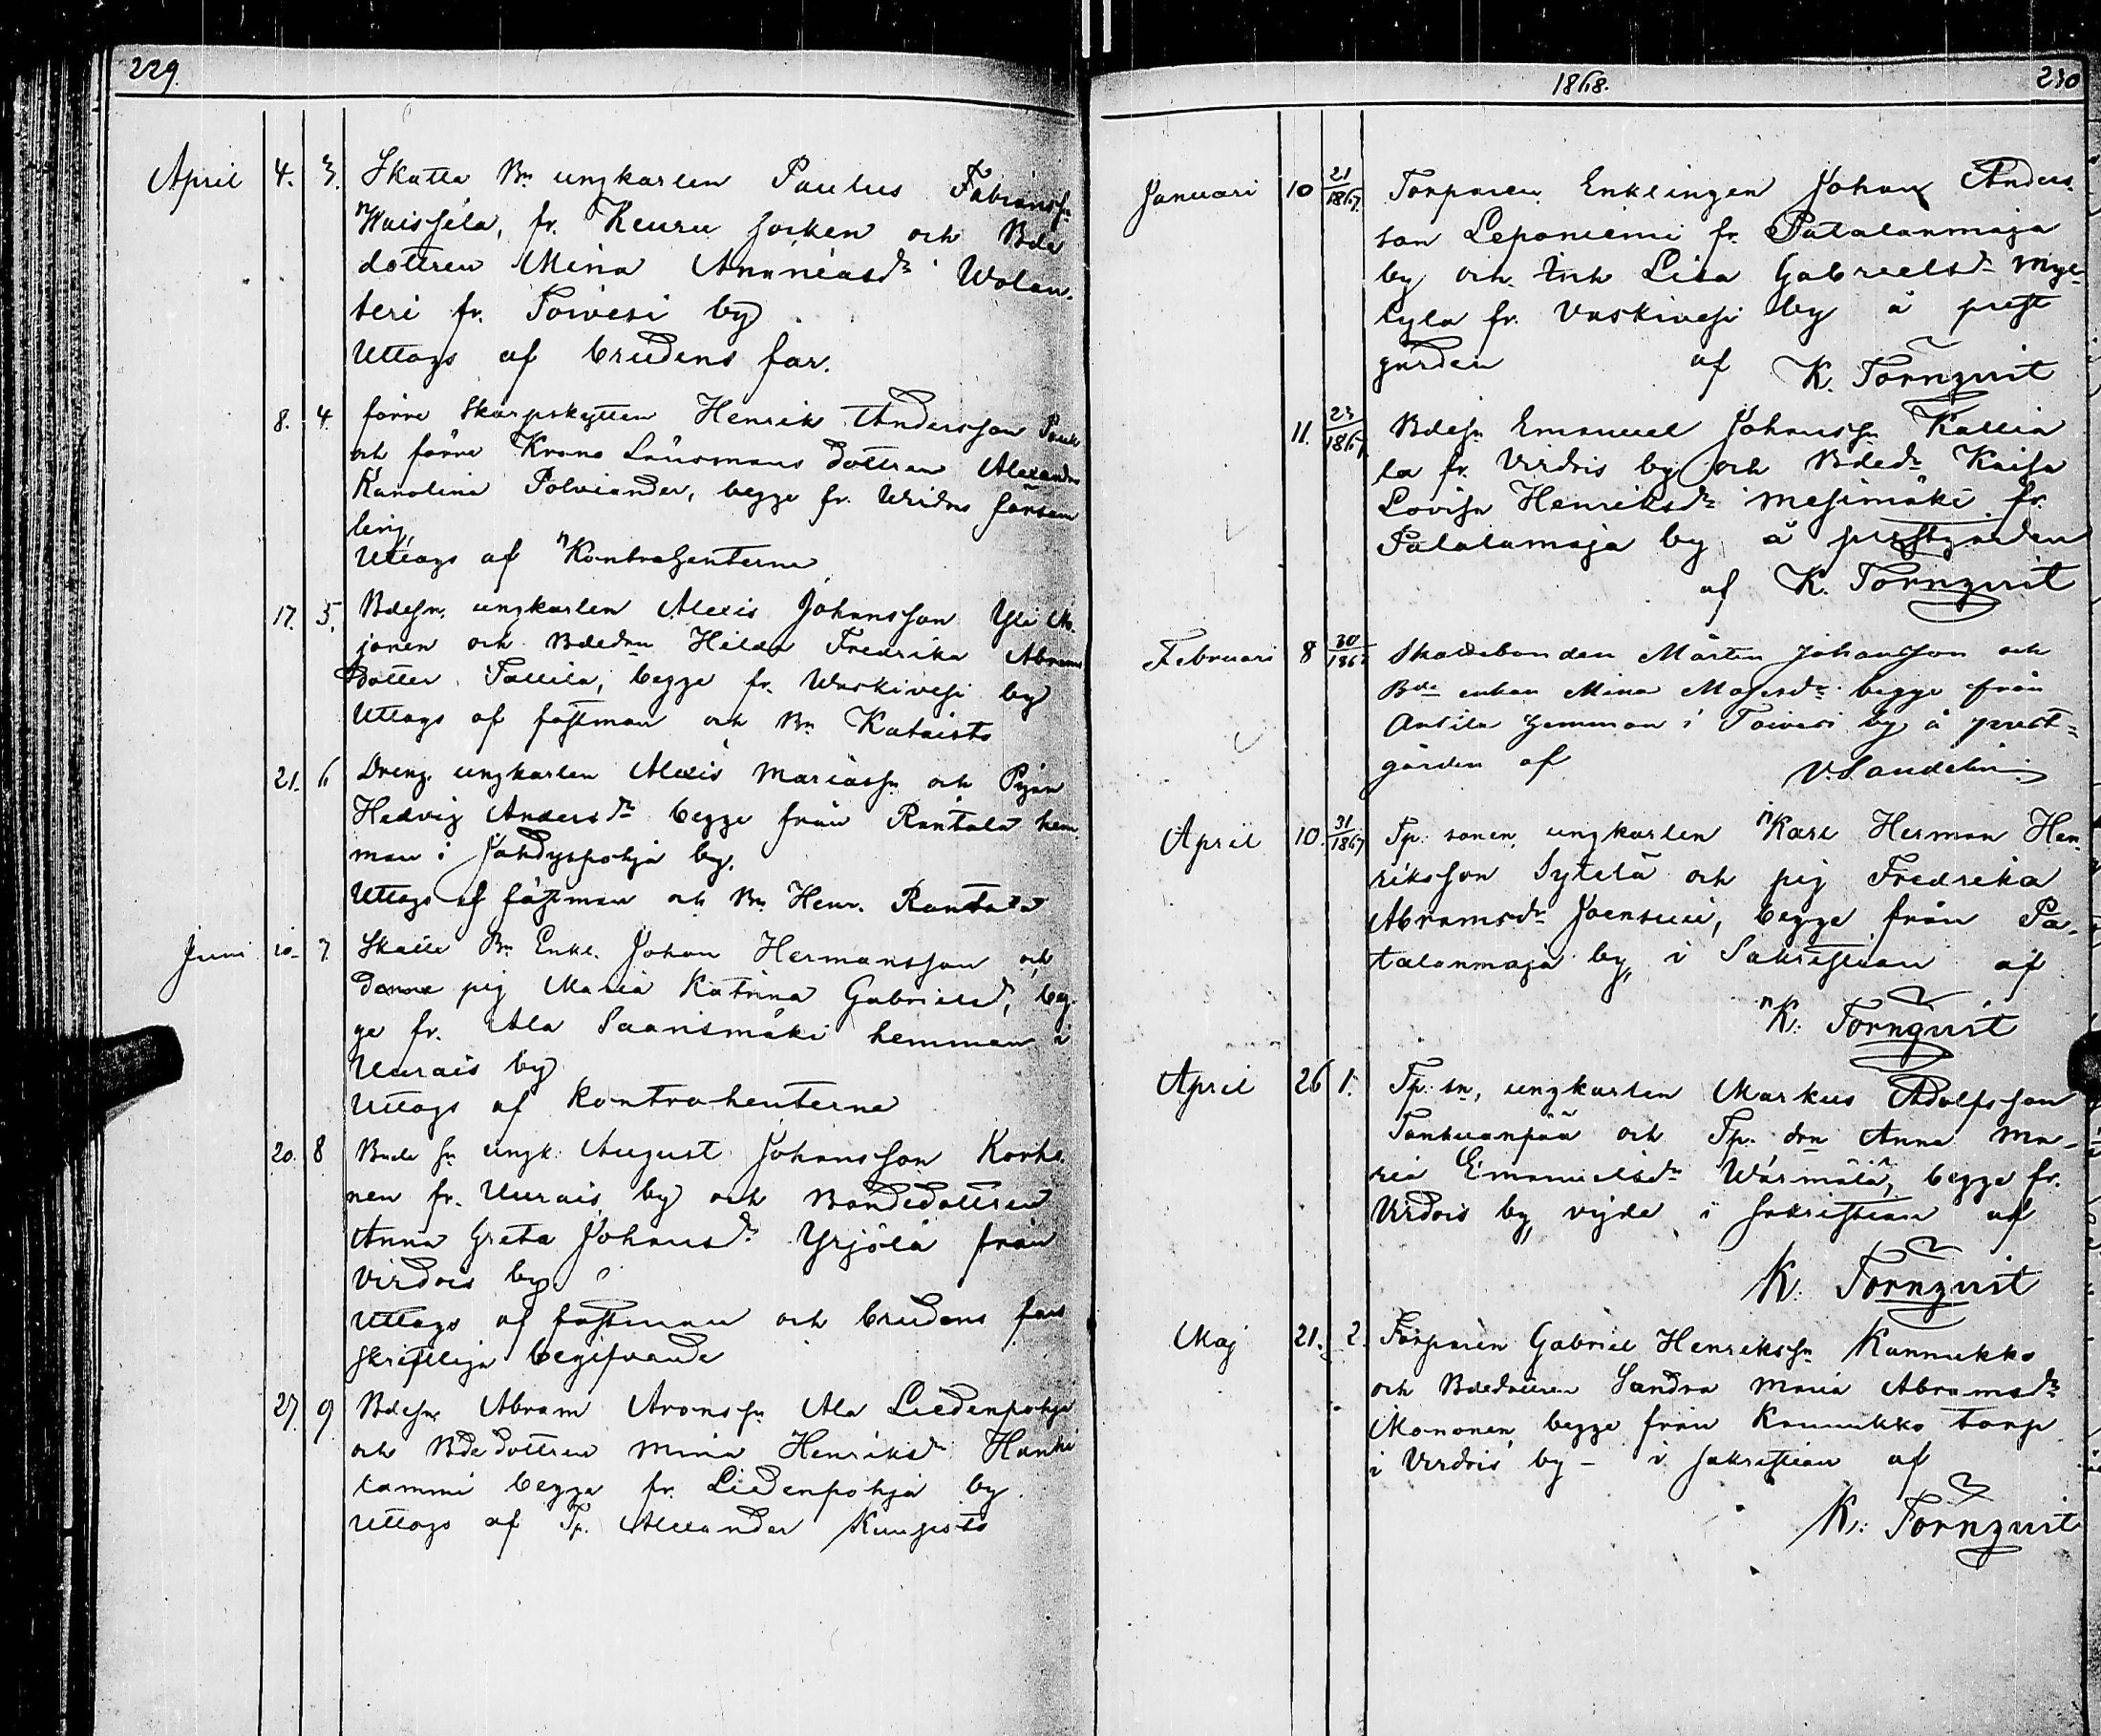 229.
April 4. 3. Skatte Bn ungkarlen Paulus Fabianssn
Kaissila, fr. Keuru socken och Bde
dottren Mina Ananiasdr Wolan-
teri fr. Toivesi by
Uttogs af brudens far.
8. 4. förre Skarpskytten Henrik Andersson
och förre Krono Länsmans dottren Alexandra
Karolina Polviander, begge fr. Wirdois försam
ling,
Uttogs af Kontrahenterne
17. 5. Bdesn. ungkarlen Alexis Johansson Yli
jonen och Bdedrn Hilda Fredrika Abrams
dotter Tallila, begge fr. Waskivesi by
Uttogs af fästman och Bn Kataisto
21. 6 Dreng. ungkarlen Alexis Mariassn och Pigan
Hedvig Andersdr begge från Rantala hem
man i Jähdyspohja by.
Uttogs af fästman och Bn Henr. Rantala
Juni 10. 7 Skatte Bn Enkl. Johan Hermansson och
denne pig Maria Katrina Gabrielsd, beg-
ge fr. Ala Saarismäki hemman i
Uurais by
Uttogs af kontrahenterne
20. 8 Bnde sn ungk. August Johansson Korho
nen fr. Uurais by och Bondedottren
Anna Greta Johansdr Yrjölä från
Virdois by
Uttogs af fästman och brudens fars
skriftliga begifvande
27. 9 Bdesn Abram Aronssn Ala Liedenpohja
och Bdedottren Mina Henriksdr Hanki
lammi begge fr. Liedenpohja by
Uttogs af Tp. Alexander Kunjisto
1868. 230
Januari 10 21/1867. Torparen Enklingen Johan Anders-
son Leponiemi fr. Patalanmaja
by och Inh Lisa Gabrielsdr Myl-
lylä fr. Vaskivesi by å prest
gården af K. Törnqvist
11. 23/1867. Bdesn Emanuel Johanssn Kallia
la fr. Virdois by och Bdedr Kaisa
Lovisa Henriksdr Mesimäki fr.
Patalamaja by å prestgården
af K. Törnqvist
Februari 8 30/1867 Skattebonden Mårten Johansson och
Bde enkan Mina Mosesdr begge från
Antila hemman i Toivesi by å prest-
gården af V. Sandelin
April 10. 31/1867 Tp. sonen, ungkarlen Karl Herman Hen
riksson Sytelä och pig Fredrika
Abramsdr Joensuu, begge från Pa-
talanmaja by, i Sakristian af
K. Törnqvist
April 26 1. Tp. sn, ungkarlen Markus Adolfsson
Tanhuanpää och Tp. drn Anna Ma-
ria Emanuelsdr Wärmälä, begge fr.
Virdois by, vigde i sakristian af
K. Törnqvist
Maj 21. 2. Torparen Gabriel Henrikssn Kannukko
och Bdedottren Sandra Maria Abramsdr
Mononen begge från Kannukko torp
i Virdois by – i sakristian af
K. Törnqvist